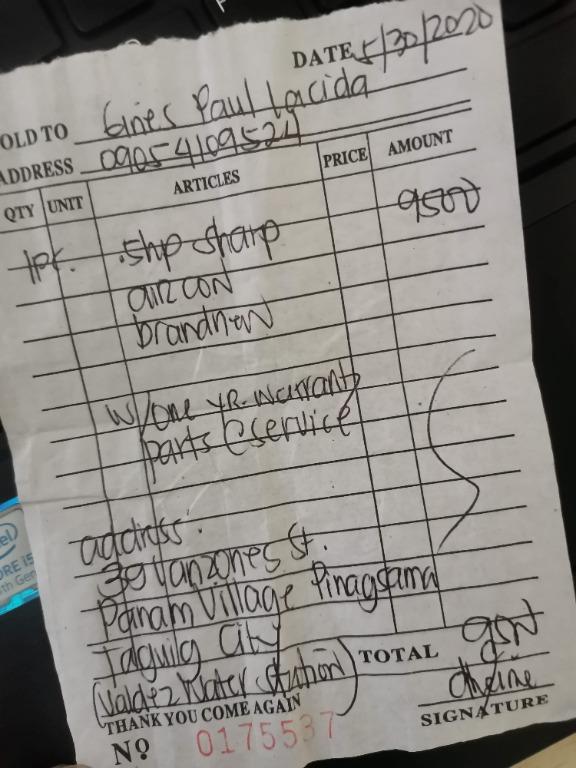 DATE 5/30/2020
OLD TO Gines Paul Lacida
ADDRESS 09054109524
QTY UNIT ARTICLES PRICE AMOUNT
1pc. .5hp sharp 9500
aircon
brandnew
w/one yr. warranty
parts @ service
address:
39 Lanzones St.
Panam Village Pinagsama
Taguig City
(Valdez Water Station)
TOTAL 9500
THANK YOU COME AGAIN
SIGNATURE
Nº 0175537
intel
CORE i5
th Gen